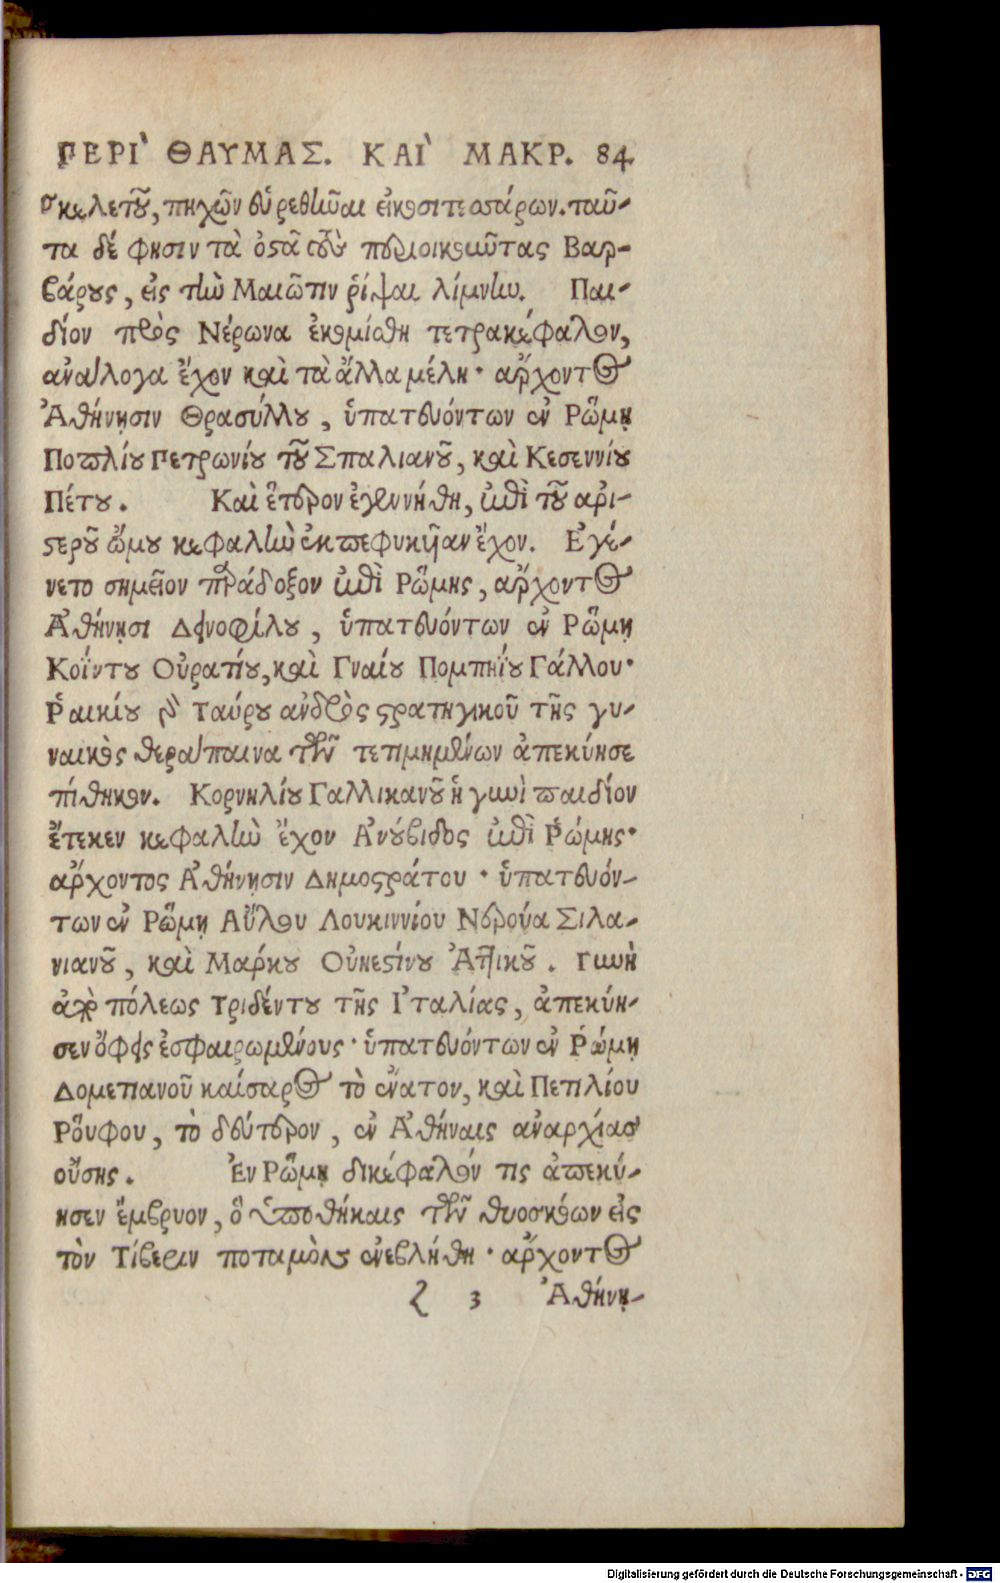 ΠΕΡΙ` ΘΑΥΜΑΣ. ΚΑΙ` ΜΑΚΡ. 84
σκελετοῦ, πηχῶν εὑρεθῆναι εἰκοσιτεσσάρων. ταῦ-
τα δέ φησιν τὰ ὀστᾶ τοὺς περιοικοῦντας Βαρ-
βάρους, εἰς τὴν Μαιῶτιν ῥίψαι λίμνην. Παι-
δίον πρὸς Νέρωνα ἐκομίσθη τετρακέφαλον,
ἀνάλογα ἔχον καὶ τὰ ἄλλα μέλη· ἄρχοντος
Ἀθήνησιν Θρασύλλου, ὑπατευόντων ἐν Ῥώμῃ
Ποπλίου Πετρωνίου τοῦ Σπαλιανοῦ, καὶ Κεσεννίου
Πέτου. Καὶ ἕτερον ἐγεννήθη, ἐπὶ τοῦ ἀρι-
στεροῦ ὤμου κεφαλὴν ἐκπεφυκῆαν ἔχον. Ἐγέ-
νετο σημεῖον παράδοξον ἐπὶ Ῥώμης, ἄρχοντος
Ἀθήνησι Δεινοφίλου, ὑπατευόντων ἐν Ῥώμῃ
Κοΐντου Οὐρατίου, καὶ Γναίου Πομπηΐου Γάλλου·
Ῥαικίου γὰρ Ταύρου ἀνδρὸς στρατηγικοῦ τῆς γυ-
ναικὸς θεράπαινα τῶν τετιμημένων ἀπεκύησε
πίθηκον. Κορνηλίου Γαλλικανοῦ ἡ γυνὴ παιδίον
ἔτεκεν κεφαλὴν ἔχον Ἀνούβιδος ἐπὶ Ῥώμης·
ἄρχοντος Ἀθήνησιν Δημοστράτου· ὑπατευόν-
των ἐν Ῥώμῃ Αὔλου Λουκιννίου Νερούα Σιλα-
νιανοῦ, καὶ Μάρκου Οὐνεστίνου Ἀττικοῦ. Γυνὴ
ἀπὸ πόλεως Τριδέντου τῆς Ἰταλίας, ἀπεκύη-
σεν ὄφεις ἐσφαιρωμένους· ὑπατευόντων ἐν Ῥώμῃ
Δομετιανοῦ καίσαρος τὸ ἔνατον, καὶ Πετιλίου
Ῥούφου, τὸ δεύτερον, ἐν Ἀθήναις ἀναρχίας
οὔσης. Ἐν Ῥώμῃ δικέφαλόν τις ἀπεκύ-
ησεν ἔμβρυον, ὃ ὑποθήκαις τῶν θυοσκόων εἰς
τὸν Τίβεριν ποταμὸν ἐνεβλήθη· ἄρχοντος
l 3 Ἀθήνη-
Digitalisierung gefördert durch die Deutsche Forschungsgemeinschaft - DFG